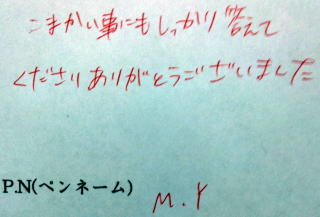 こまかい事にもしっかり答えて
くださりありがとうございました
P.N(ペンネーム) M.Y